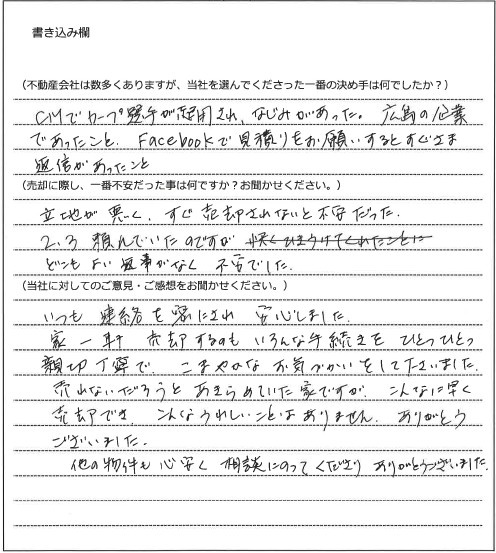 書き込み欄
(不動産会社は数多くありますが、当社を選んでくださった一番の決め手は何でしたか?)
CMでカープ選手が起用され、なじみがあった。広島の企業
であったこと、Facebookで見積りをお願いするとすぐさま
返信があったこと
(売却に際し、一番不安だった事は何ですか?お聞かせください。)
立地が悪く、すぐ売却されないと不安だった。
2、3頼んでいたのですが 快くひきうけてくれたことに
どこもよい返事がなく 不安でした。
(当社に対してのご意見・ご感想をお聞かせください。)
いつも 連絡を密にされ 安心しました。
家一軒 売却するのも いろんな手続きを ひとつひとつ
親切丁寧で、こまやかな お気づかいをして下さいました。
売れないだろうと あきらめていた家ですが、こんなに早く
売却でき、こんなうれしいことはありません。ありがとう
ございました。
他の物件も 心安く 相談にのってくださり ありがとうございました。